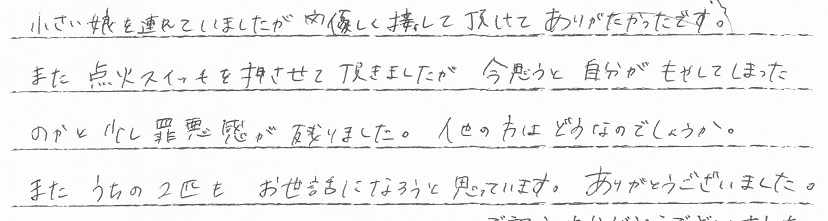 小さい娘を連れていましたが 優しく接して頂けて ありがたかったです。
また 点火スイッチを押させて頂きましたが 今思うと 自分がもやしてしまった
のかと 少し罪悪感が残りました。 他の方はどうなのでしょうか。
また うちの2匹も お世話になろうと思っています。 ありがとうございました。